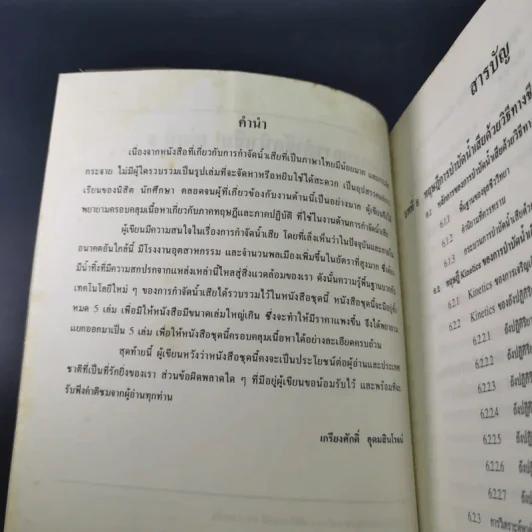 คำนำ
เนื่องจากหนังสือที่เกี่ยวกับการกำจัดน้ำเสียที่เป็นภาษาไทยมีน้อยมาก
กระจาย ไม่มีผู้ใดรวบรวมเป็นรูปเล่มที่จะจัดหาหรือหยิบใช้ได้สะดวก เป็นอุปสรรค
เรียนของนิสิต นักศึกษา ตลอดจนผู้ที่เกี่ยวข้องกับงานด้านนี้เป็นอย่างมาก
พยายามครอบคลุมเนื้อหาเกี่ยวกับภาคทฤษฎีและภาคปฏิบัติ ที่ใช้ในงานด้านการกำจัด
ผู้เขียนมีความสนใจในเรื่องการกำจัดน้ำเสีย โดยที่เล็งเห็นว่าในปัจจุบัน
อนาคตอันใกล้นี้ มีโรงงานอุตสาหกรรม และจำนวนพลเมืองเพิ่มขึ้นในอัตราที่สูงมาก
มีน้ำทิ้งที่มีความสกปรกจากแหล่งเหล่านี้ไหลสู่สิ่งแวดล้อมของเรา ดังนั้นความรู้พื้นฐาน
เทคโนโลยีใหม่ ๆ ของการกำจัดน้ำเสียได้รวบรวมไว้ในหนังสือชุดนี้ หนังสือชุดนี้จะมีอยู่
หมด 5 เล่ม เพื่อมิให้หนังสือมีขนาดเล่มใหญ่เกิน ซึ่งจะทำให้มีราคาแพงขึ้น จึงได้พยายาม
แยกออกมาเป็น 5 เล่ม เพื่อให้หนังสือชุดนี้ครอบคลุมเนื้อหาได้อย่างละเอียดครบถ้วน
สุดท้ายนี้ ผู้เขียนหวังว่าหนังสือชุดนี้คงจะเป็นประโยชน์ต่อผู้อ่านและประเทศ
ชาติที่เป็นที่รักยิ่งของเรา ส่วนข้อผิดพลาดใด ๆ ที่มีอยู่ผู้เขียนขอน้อมรับไว้ และพร้อมที่จะ
รับฟังคำติชมจากผู้อ่านทุกท่าน
เกรียงศักดิ์ อุดมสินโรจน์
สารบัญ
ทฤษฎีการบำบัดน้ำเสียด้วยวิธีทางชี
6.1 หลักการของการบำบัดน้ำเสียด้วย
6.1.1 พื้นฐานของจุลชีววิทยา
6.1.2
6.1.3 กระบวนการบำบัดน้ำเสีย
6.2 ทฤษฎี Kinetics ของการบำบัดน้ำ
6.2.1 Kinetics ของการเจริญ
6.2.2 Kinetics ของปฏิกิริ
6.2.2.1
6.2.2.2
6.2.2.3
6.2.2.4
6.2.2.5
6.2.2.6
6.2.2.7
6.2.3 การวิเคราะห์